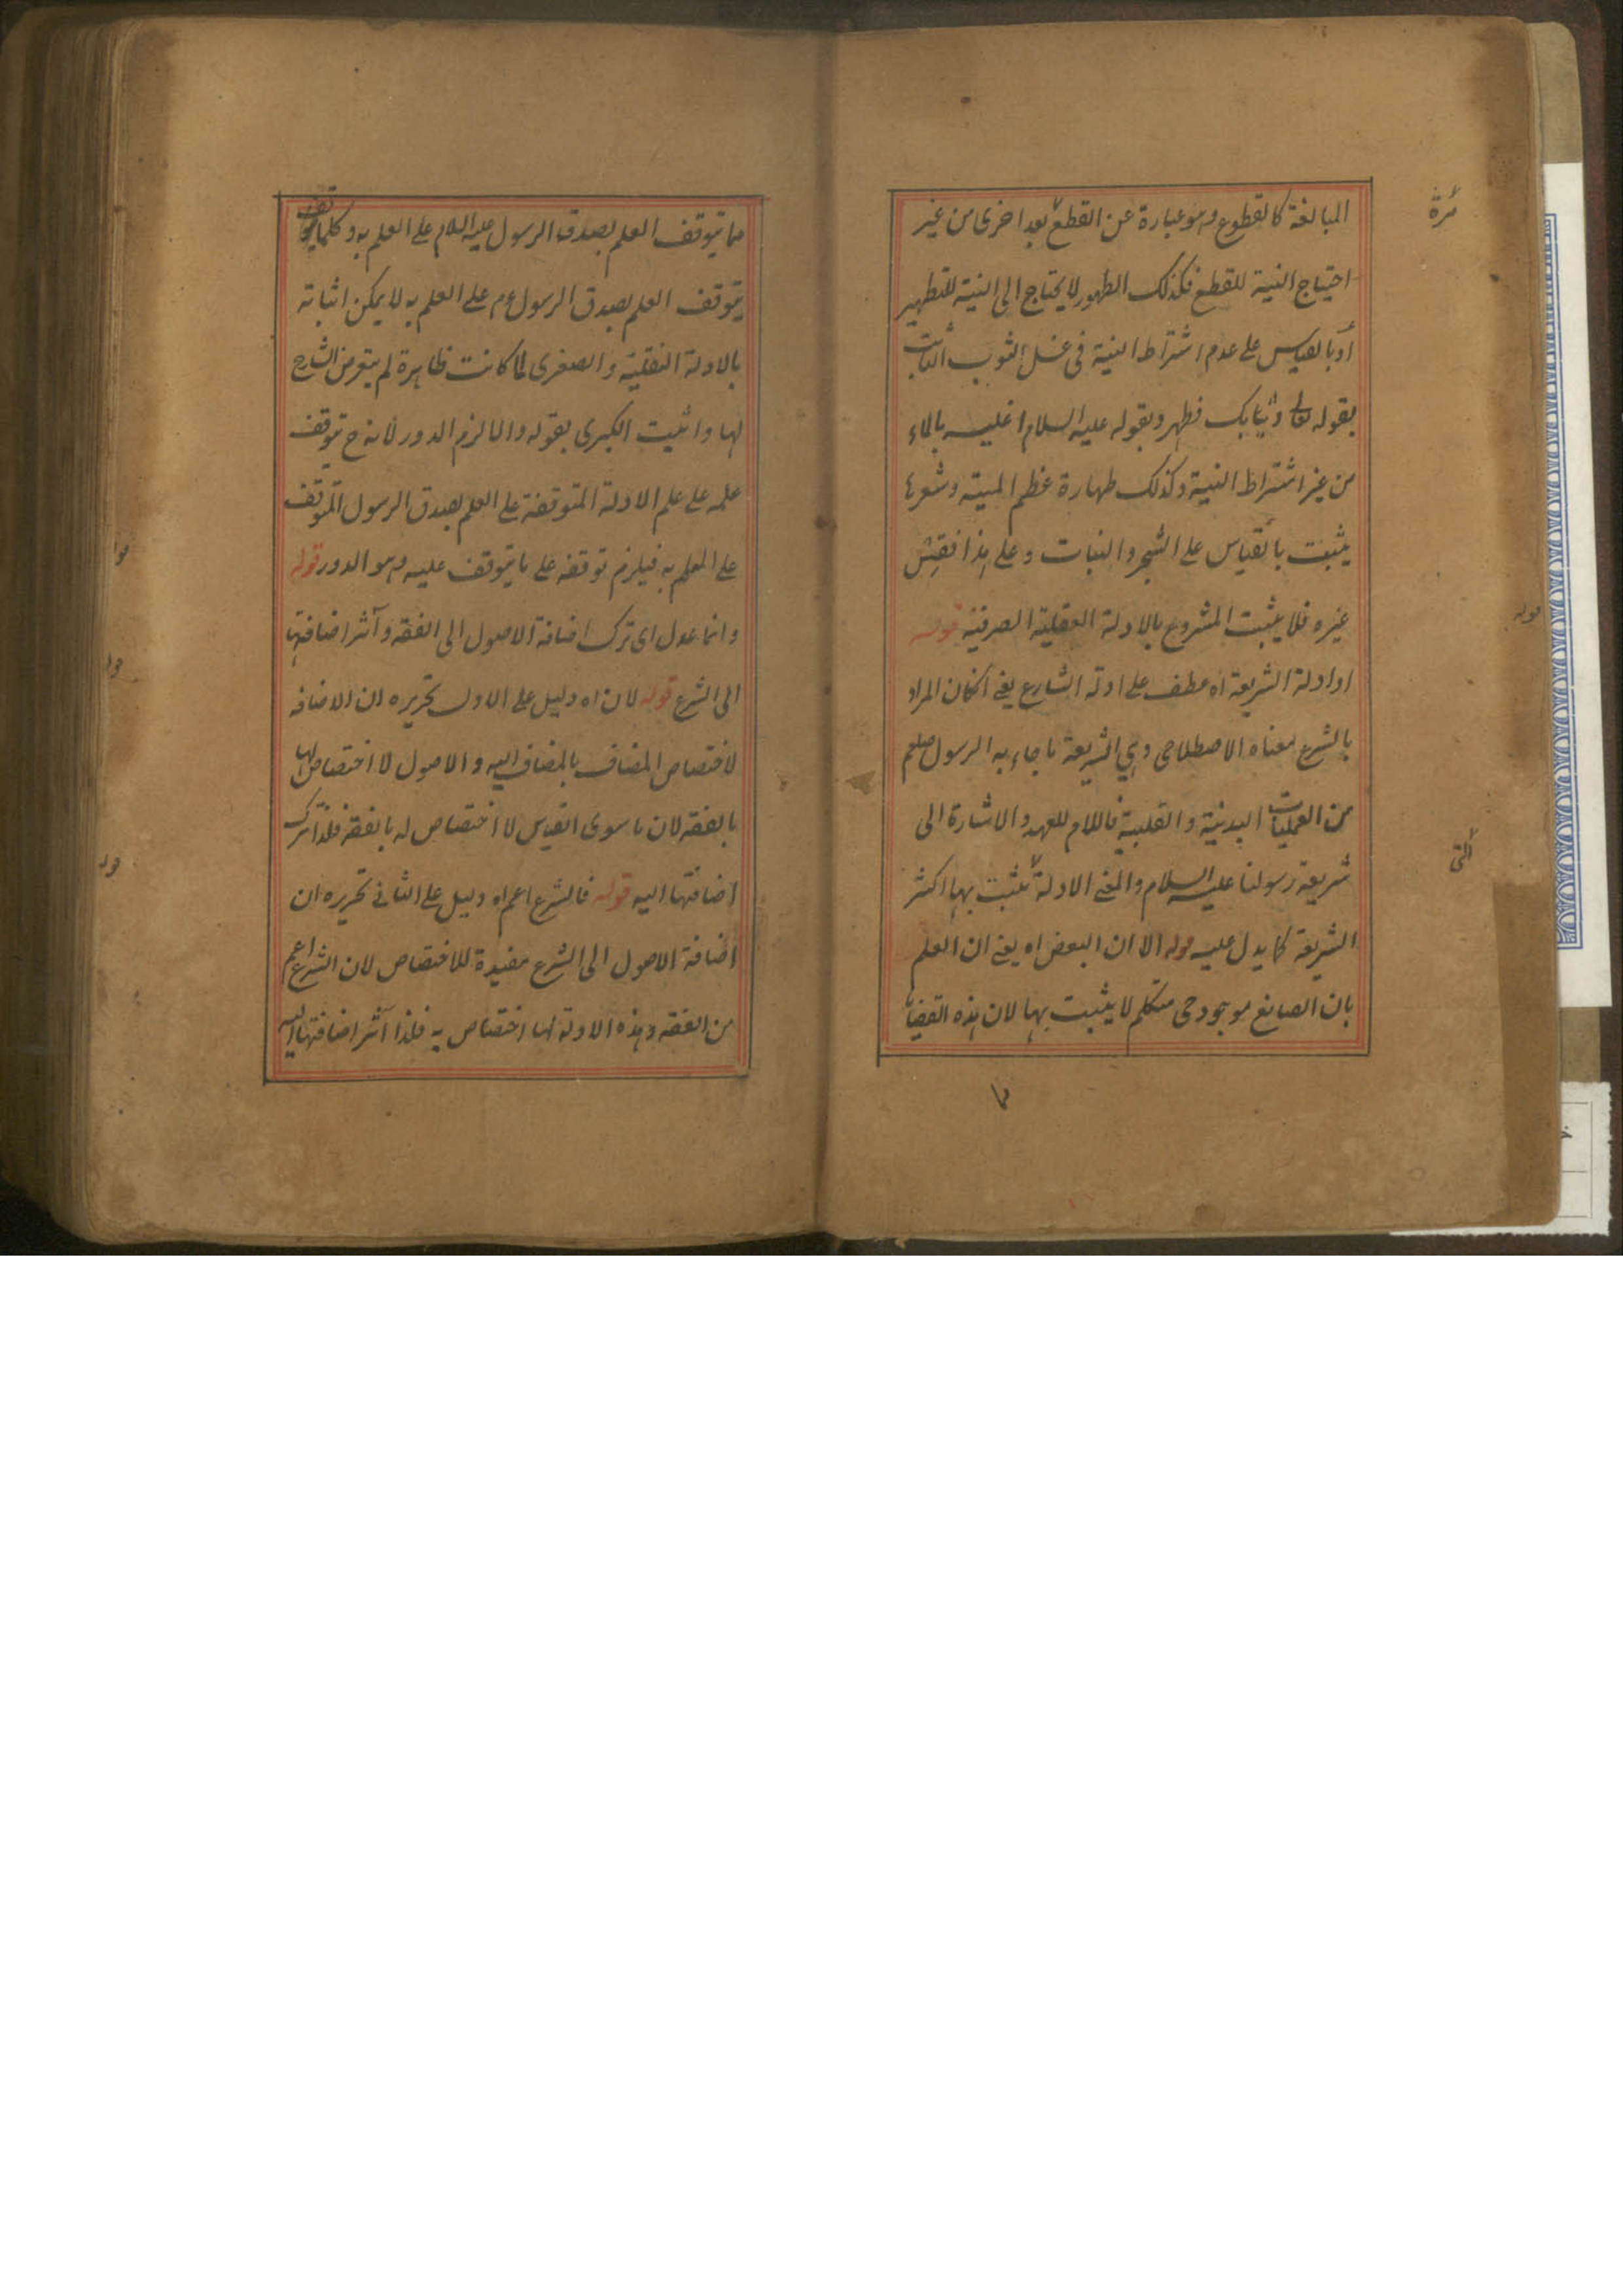 المبالغة كالقطوع وهو عبارة عن القطع بعد اخرى من غير
مرة
احتياج النية للقطع فكذلك الطهور لا يحتاج الى النية للتطهير
او بالقياس على عدم اشتراط النية فى غسل الثوب الثابت
بقوله تعالى وثيابك فطهر وبقوله عليه السلام اغليه بالماء
من غير اشتراط النية وكذلك طهارة عظم الميتة وشعرها
يثبت بالقياس على الشجر والنبات وعلى هذا فقس
غيره فلا يثبت المشروع بالادلة العقلية الصرفية قوله
قوله
او ادلة الشريعة اه عطف على ادلة الشارع يعنى ان كان المراد
بالشرع معناه الاصطلاحى وهى الشريعة ما جاء به الرسول صلعم
من العمليات البدنية والقلبية فاللام للعهد والاشارة الى
شريعة رسولنا عليه السلام والمعنى الادلة تثبت بها اكثر
التى
الشريعة كما يدل عليه قوله الا ان البعض اه يعنى ان العلم
بان الصانع موجود حى متكلم لا يثبت بها لان هذه القضايا
مما يتوقف العلم بصدق الرسول عليه السلام على العلم به وكلما يتوقف
يتوقف العلم بصدق الرسول عم على العلم به لا يمكن اثباته
بالادلة النقلية والصغرى لما كانت ظاهرة لم يتعرض الشارح
لها واثبت الكبرى بقوله والا لزم الدور لانه ح يتوقف
علمه على علم الادلة المتوقفة على العلم بصدق الرسول المتوقف
على العلم به فيلزم توقفه على ما يتوقف عليه وهو الدور قوله
وانما عدل اى ترك اضافة الاصول الى الفقه وآثر اضافتها
الى الشرع قوله لان اه دليل على الاول تحريره ان الاضافة
لاختصاص المضاف بالمضاف اليه والاصول لا اختصاص لها
بالفقه لان ما سوى القياس لا اختصاص له بالفقه فلذا ترك
اضافتها اليه قوله فالشرع اعم اه دليل على الثانى تحريره ان
اضافة الاصول الى الشرع مفيدة للاختصاص لان الشرع اعم
من الفقه وهذه الادلة لها اختصاص به فلذا آثر اضافتها اليه